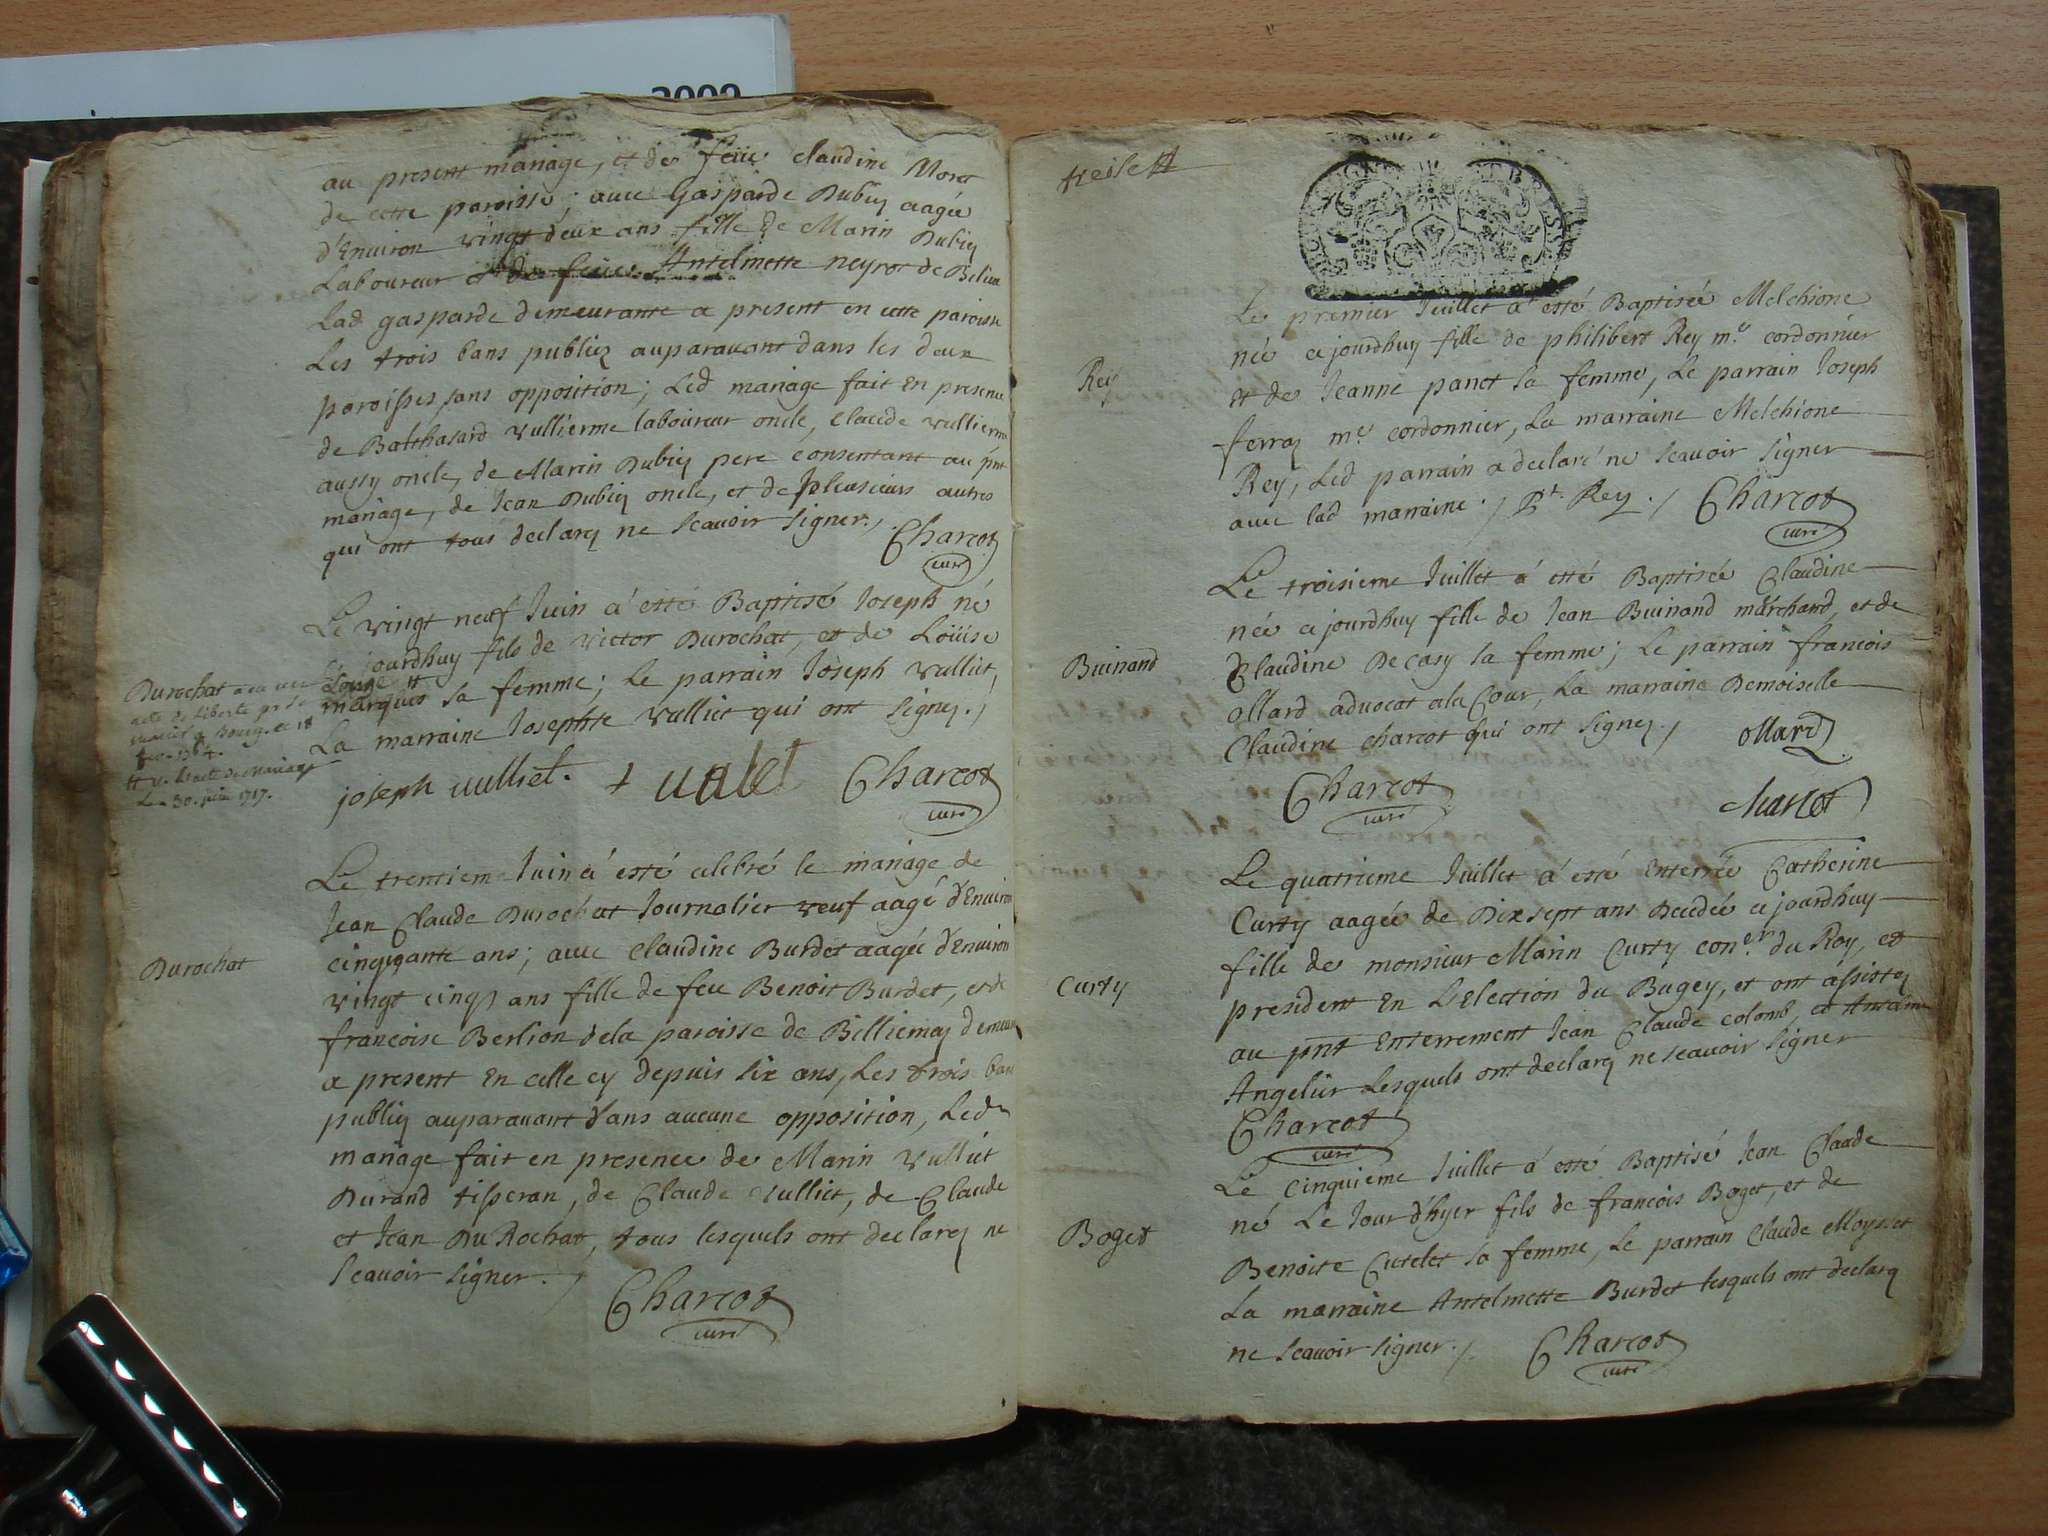 3002
au present mariage, et de feüe claudine Moret
de cette paroisse; auec Gasparde Dubiez aagée
d'Enuiron vingt deux ans fille de Marin Dubiez
Laboureur et de feüe Antelmette neyrot de
Lad gasparde demeurante a present en cette paroisse
Les trois bans publiez auparauant dans les deux
paroisses sans opposition; Led mariage fait en presence
de Balthasard vullierme laboureur oncle, Claude vullierme
aussy oncle, de Marin Dubiez pere consentant au pnt
mariage, de Jean Dubiez oncle, et de plusieurs autres
qui ont tous declarez ne scauoir signer./.
Charcot
curé
Le vingt neuf Juin a esté Baptisé Joseph né
ce jourdhuy fils de victor Durochat, et de Loüise
marquis sa femme; Le parrain Joseph vulliet,
La marraine Josephte vulliet qui ont signez./
Durochat
30. juin 1717.
joseph vulliet. + Charcot
curé
Le trentieme Juin a esté celebré le mariage de
Jean Claude Durochat Journalier veuf aagé d'Enuiron
cinquante ans; auec Claudine Burdet aagée d'Enuiron
vingt cinq ans fille de feu Benoit Burdet, et de
francoise Berlion dela paroisse de Billiemaz
a present En celle cy depuis six ans, Les trois bans
publiez auparauant sans aucune opposition, Led
mariage fait en presence de Marin vulliet
Durand tisseran, de Claude vulliet, de Claude
et Jean Du Rochat, tous lesquels ont declarez ne
scauoir signer./
Durochat
Charcot
curé
Le premier Juillet a esté Baptisée Melchione
née ce jourdhuy fille de philibert Rey me cordonnier
et de Jeanne panet sa femme, Le parrain Joseph
ferraz me cordonnier, La marraine Melchione
Rey, Led parrain a declaré ne scauoir signer
auec lad marraine./ Pt. Rey./ Charcot
curé
Rey
Le troisieme Juillet a esté Baptisée Claudine
née ce jourdhuy fille de Jean Buinand marchand, et de
Claudine Decasy sa femme; Le parrain francois
ollard aduocat ala Cour, La marraine Demoiselle
Claudine Charcot qui ont signez./ ollard
Buinand
Charcot
curé
charcot
Le quatrieme Juillet a esté Enterrée Catherine
Curty aagée de Dix sept ans Decedée ce jourdhuy
fille de monsieur Marin Curty coner. du Roy, et
president En L'Election du Bugey, et ont assistez
au pnt Enterrement Jean Claude colomb, et Antelme
Angelier Lesquels ont declarez ne scauoir signer
Curty
Charcot
curé
Le cinquieme Juillet a esté Baptisé Jean Claude
né Le Jour d'hyer fils de francois Boget, et de
Benoite Cutelet sa femme, Le parrain Claude Moysset
La marraine Antelmette Burdet lesquels ont declarez
ne scauoir signer./. Charcot
curé
Boget